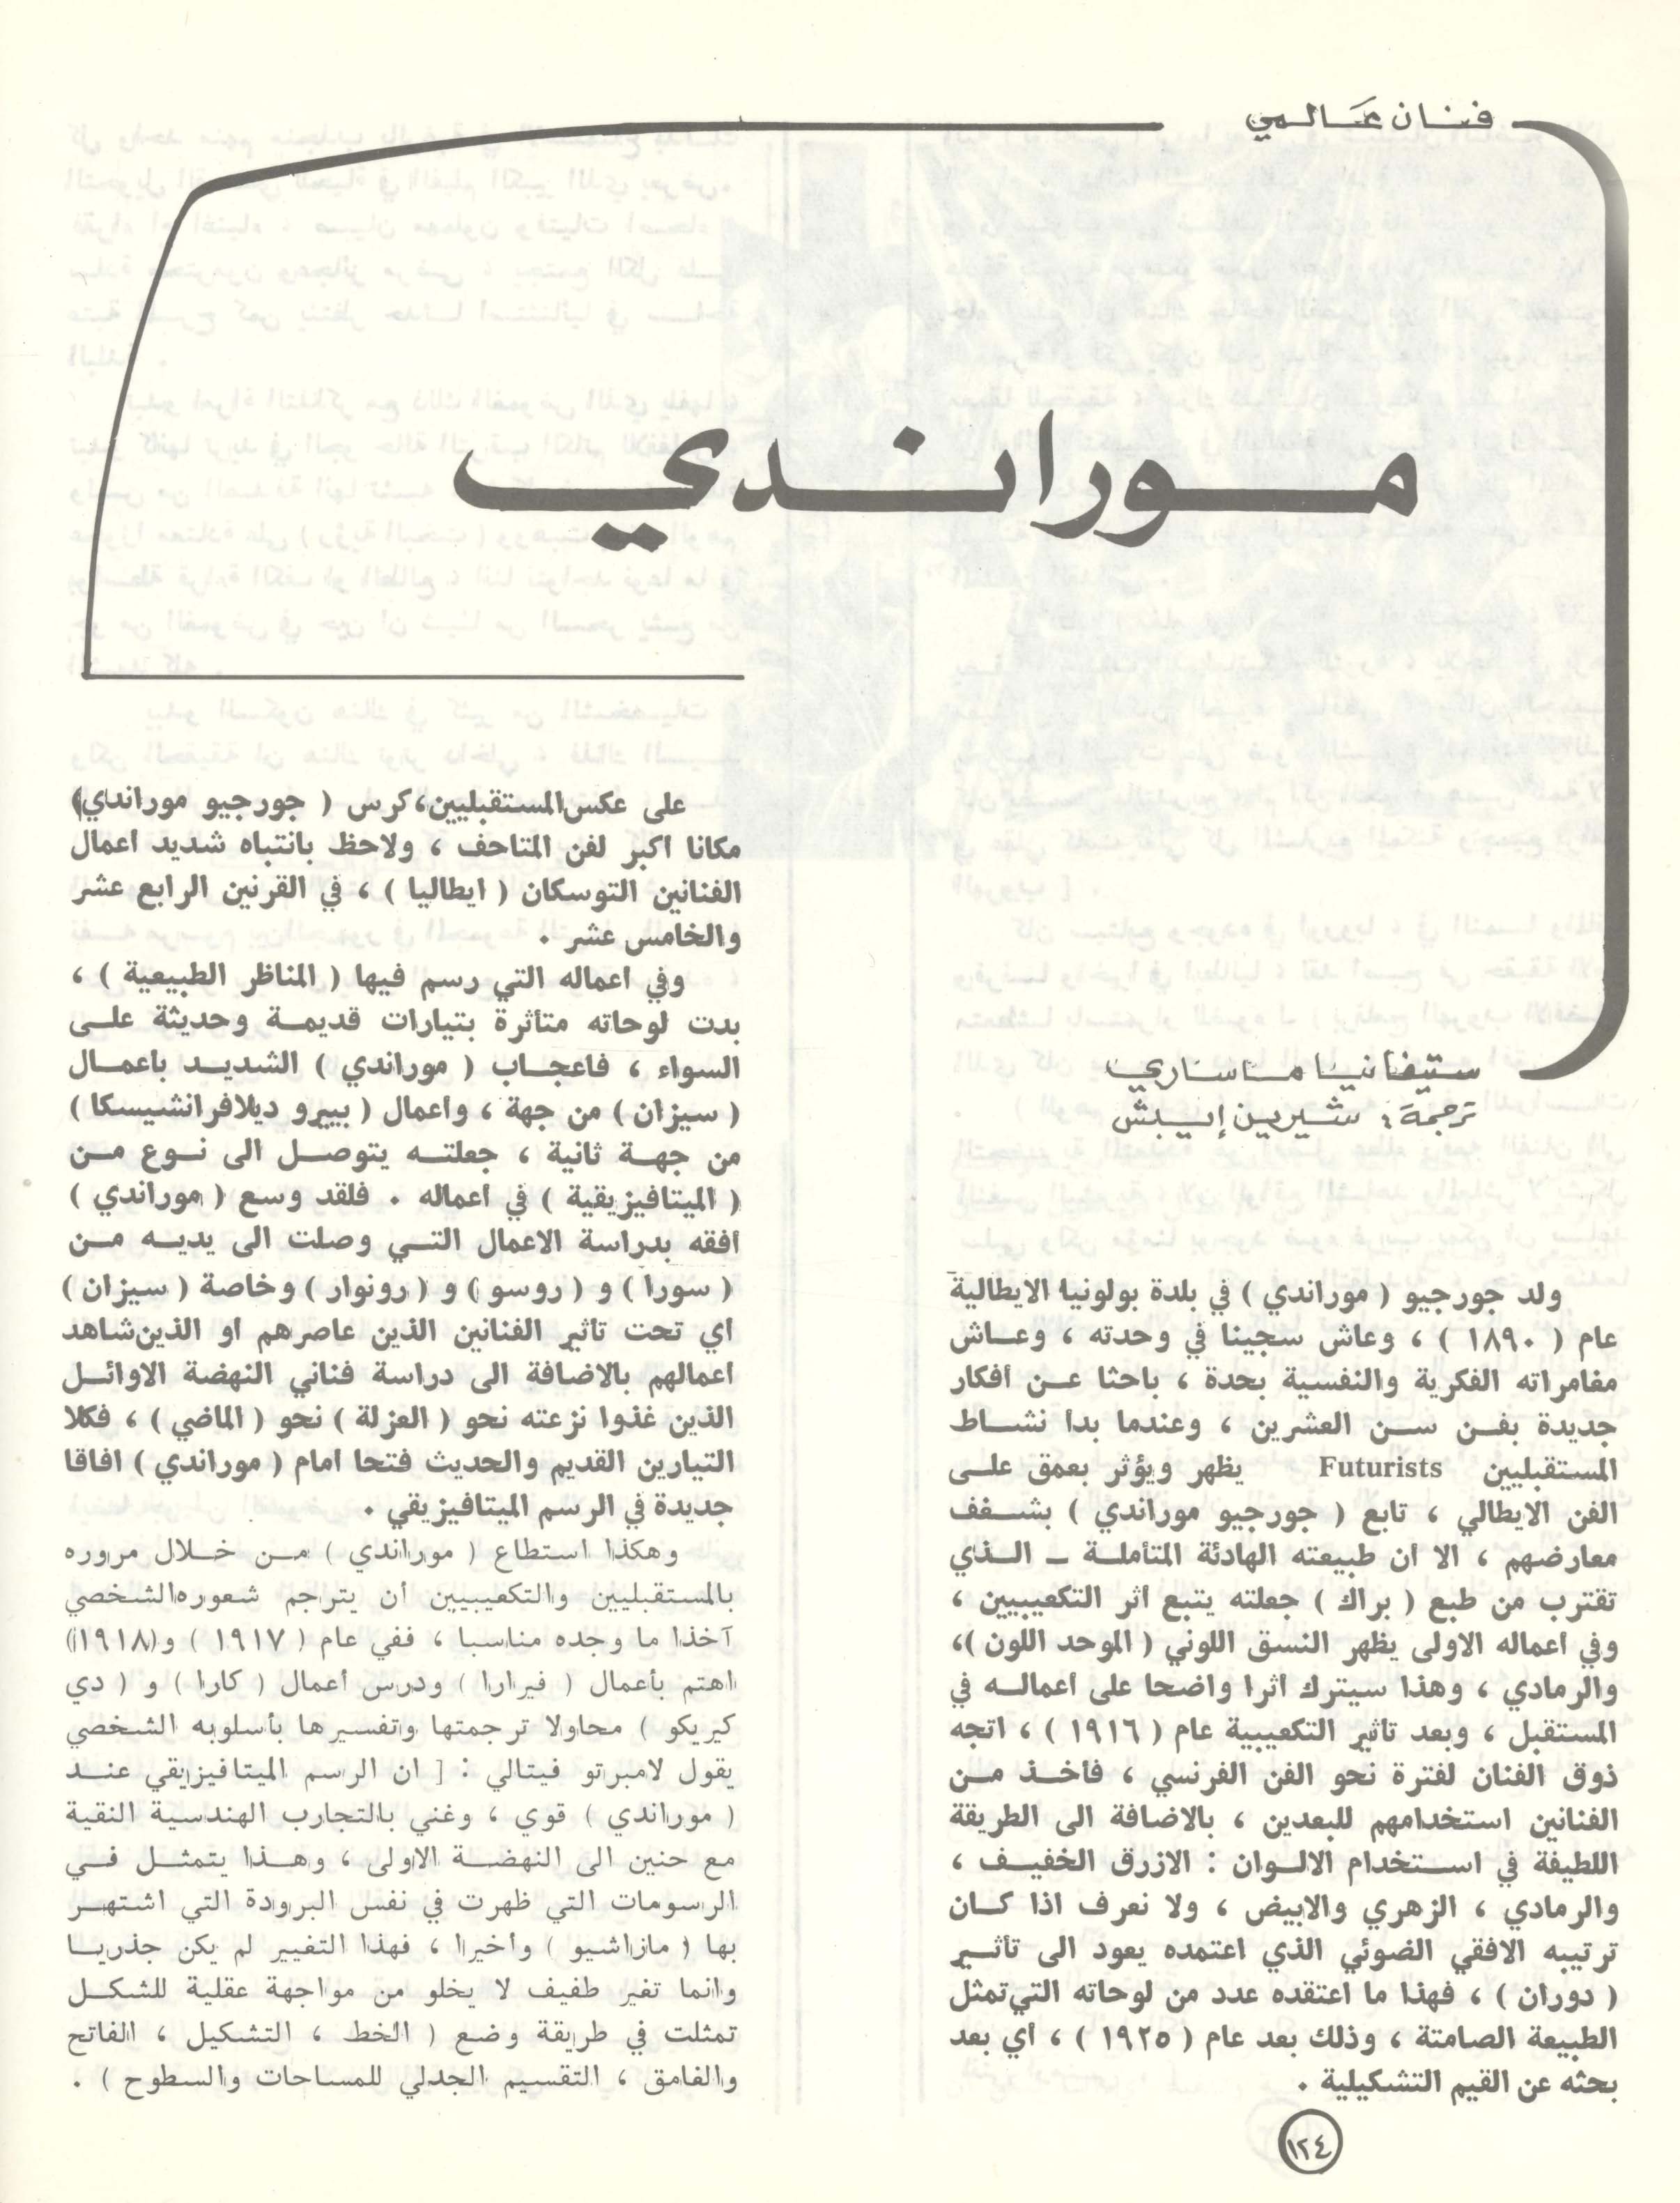 فنان عَالمي
موراندي
ستيفانيا ماساري
ترجمة : شيرين إيبش
ولد جورجيو ( موراندي ) في بلدة بولونيا الايطالية
عام ( ١٨٩٠ ) ، وعاش سجينا في وحدته ، وعاش
مغامراته الفكرية والنفسية بحدة ، باحثا عن أفكار
جديدة بفن سن العشرين ، وعندما بدأ نشاط
المستقبليين Futurists يظهر ويؤثر بعمق على
الفن الايطالي ، تابع ( جورجيو موراندي ) بشغف
معارضهم ، الا أن طبيعته الهادئة المتأملة ــ الذي
تقترب من طبع ( براك ) جعلته يتبع أثر التكعيبيين ،
وفي أعماله الاولى يظهر النسق اللوني ( الموحد اللون )،
والرمادي ، وهذا سيترك أثرا واضحا على أعماله في
المستقبل ، وبعد تأثير التكعيبية عام ( ١٩١٦ ) ، اتجه
ذوق الفنان لفترة نحو الفن الفرنسي ، فأخذ من
الفنانين استخدامهم للبعدين ، بالاضافة الى الطريقة
اللطيفة في استخدام الالوان : الازرق الخفيف ،
والرمادي ، الزهري والابيض ، ولا نعرف اذا كان
ترتيبه الافقي الضوئي الذي اعتمده يعود الى تأثير
( دوران ) ، فهذا ما اعتقده عدد من لوحاته التي تمثل
الطبيعة الصامتة ، وذلك بعد عام ( ١٩٢٥ ) ، أي بعد
بحثه عن القيم التشكيلية .
على عكس المستقبليين، كرس ( جورجيو موراندي)
مكانا اكبر لفن المتاحف ، ولاحظ بانتباه شديد اعمال
الفنانين التوسكان ( ايطاليا ) ، في القرنين الرابع عشر
والخامس عشر .
وفي اعماله التي رسم فيها ( المناظر الطبيعية ) ،
بدت لوحاته متأثرة بتيارات قديمة وحديثة على
السواء ، فاعجاب ( موراندي ) الشديد باعمال
( سيزان ) من جهة ، واعمال ( بييرو ديلافرانشيسكا )
من جهة ثانية ، جعلته يتوصل الى نوع من
( الميتافيزيقية ) في أعماله . فلقد وسع ( موراندي )
أفقه بدراسة الاعمال التي وصلت الى يديه من
( سورا ) و ( روسو ) و ( رونوار ) وخاصة ( سيزان )
أي تحت تأثير الفنانين الذين عاصرهم او الذين شاهد
اعمالهم بالاضافة الى دراسة فناني النهضة الاوائل
الذين غذوا نزعته نحو ( العزلة ) نحو ( الماضي ) ، فكلا
التيارين القديم والحديث فتحا امام ( موراندي ) افاقا
جديدة في الرسم الميتافيزيقي .
وهكذا استطاع ( موراندي ) من خلال مروره
بالمستقبليين والتكعيبيين أن يترجم شعوره الشخصي
آخذا ما وجده مناسبا ، ففي عام ( ١٩١٧ ) و(١٩١٨)
اهتم بأعمال ( فيرارا ) ودرس أعمال ( كارا ) و ( دي
كيريكو ) محاولا ترجمتها وتفسيرها بأسلوبه الشخصي
يقول لامبرتو فيتالي : [ ان الرسم الميتافيزيقي عند
( موراندي ) قوي ، وغني بالتجارب الهندسية النقية
مع حنين الى النهضة الاولى ، وهذا يتمثل في
الرسومات التي ظهرت في نفس البرودة التي اشتهر
بها ( مازاشيو ) وأخيرا ، فهذا التغيير لم يكن جذريا
وانما تغير طفيف لا يخلو من مواجهة عقلية للشكل
تمثلت في طريقة وضع ( الخط ، التشكيل ، الفاتح
والغامق ، التقسيم الجدلي للمساحات والسطوح ) .
١٢٤